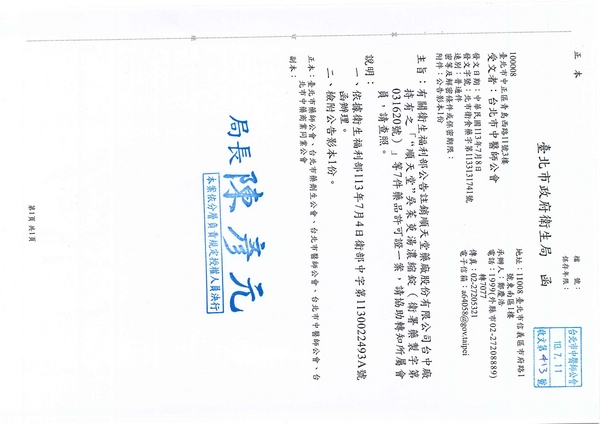 正本
檔　號：
保存年限：
臺北市政府衛生局　函
台北市中醫師公會
10.7.11
收文第413號
地址：11008 臺北市信義區市府路1
號東南區1樓
承辦人：鄭慶浩
電話：1999(外縣市02-27208889)
轉7077
傳真：02-27205321
電子信箱：a64058@gov.taipei
100008
臺北市中正區青島西路11號3樓
受文者：台北市中醫師公會
發文日期：中華民國113年7月8日
發文字號：北市衛食藥字第1133131741號
速別：普通件
密等及解密條件或保密期限：
附件：公告影本1份
主旨：有關衛生福利部公告註銷順天堂藥廠股份有限公司台中廠
持有之「"順天堂"吳茱萸湯濃縮錠（衛署藥製字第
031620號）」等7件藥品許可證一案，請協助轉知所屬會
員，請查照。
說明：
一、依據衛生福利部113年7月4日衛部中字第1130022493A號
函辦理。
二、檢附公告影本1份。
正本：臺北市藥師公會、台北市藥劑生公會、台北市醫師公會、台北市中醫師公會、台
北市中藥商業同業公會
副本：
局長陳彥元
本案依分層負責規定授權人員決行
第1頁 共1頁